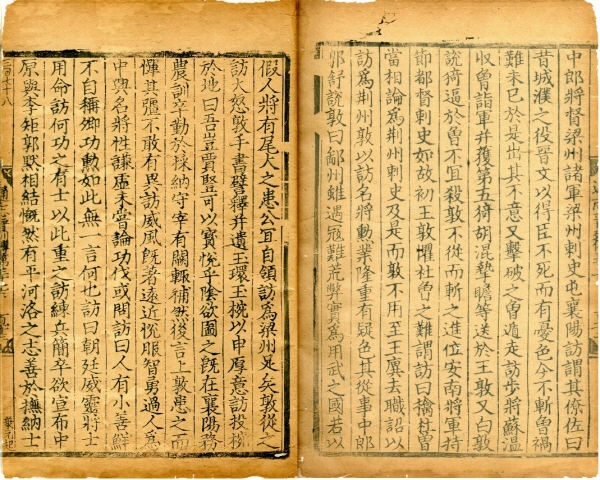 中郎將督梁州諸軍梁州刺史屯襄陽訪謂其僚佐曰
昔城濮之役晉文以得臣不死而有憂色今不斬曾禍
難未已於是出其不意又擊破之曾遁走訪步將蘇溫
收曾詣軍并獲第五猗胡混摯瞻等送於王敦又白敦
說猗逼於曾不宜殺敦不從而斬之進位安南將軍持
節都督刺史如故初王敦懼杜曾之難謂訪曰擒杜曾
當相論爲荆州刺史及是而敦不用至王廙去職詔以
訪爲荆州敦以訪名將勲業隆重有疑色其從事中郎
郭舒說敦曰鄙州雖遇寇難荒弊實爲用武之國若以
假人將有尾大之患公宜自領訪爲梁州足矣敦從之
訪大怒敦手書譬釋并遺玉環玉椀以申厚意訪投椀
於地曰吾豈賈豎可以寶悅乎陰欲圖之旣在襄陽務
農訓卒勤於採納守宰有闕輒補然後言上敦患之而
憚其彊不敢有異訪威風旣著遠近悅服智勇過人爲
中興名將性謙虛未嘗論功伐或問訪曰人有小善鮮
不自稱卿功勲如此無一言何也訪曰朝廷威靈將士
用命訪何功之有士以此重之訪練兵簡卒欲宣布中
原與李矩郭默相結慨然有平河洛之志善於撫納士